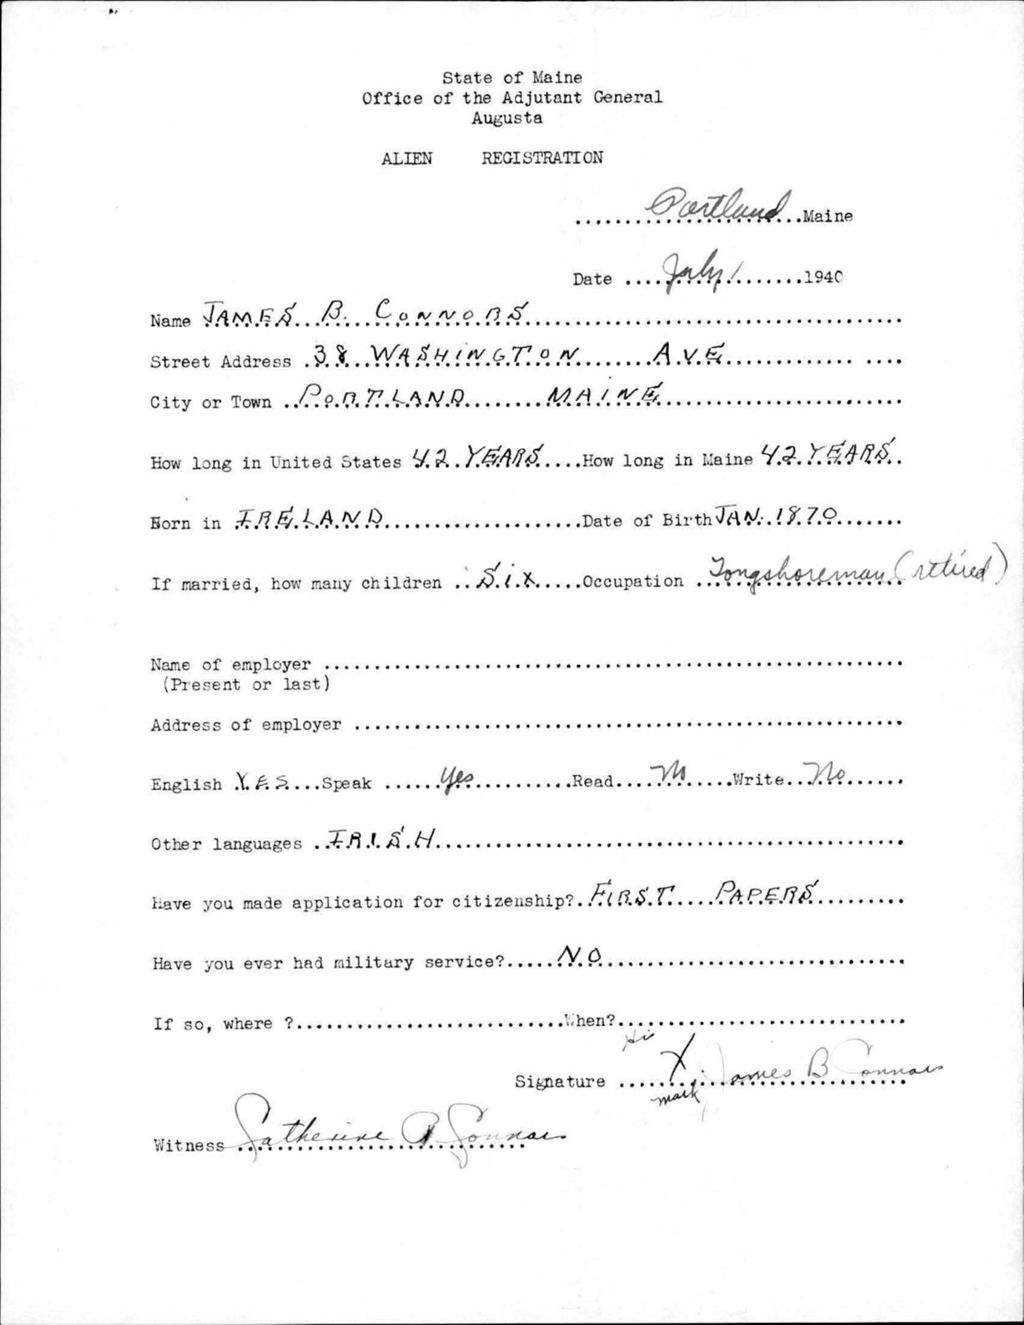 State of Maine
Office of the Adjutant General
Augusta
ALIEN REGISTRATION
Portland Maine
Date July 1 1940
Name JAMES B. CONNORS
Street Address 38 WASHINGTON AVE
City or Town PORTLAND MAINE
How long in United States 42 YEARS How long in Maine 42 YEARS
Born in IRELAND Date of Birth JAN. 1870
If married, how many children Six Occupation Longshoreman (retired)
Name of employer
(Present or last)
Address of employer
English YES Speak Yes Read No Write No
Other languages IRISH
Have you made application for citizenship? FIRST PAPERS
Have you ever had military service? NO
If so, where ? When?
His
Signature X James B Connors
mark
Witness Catherine A Connors